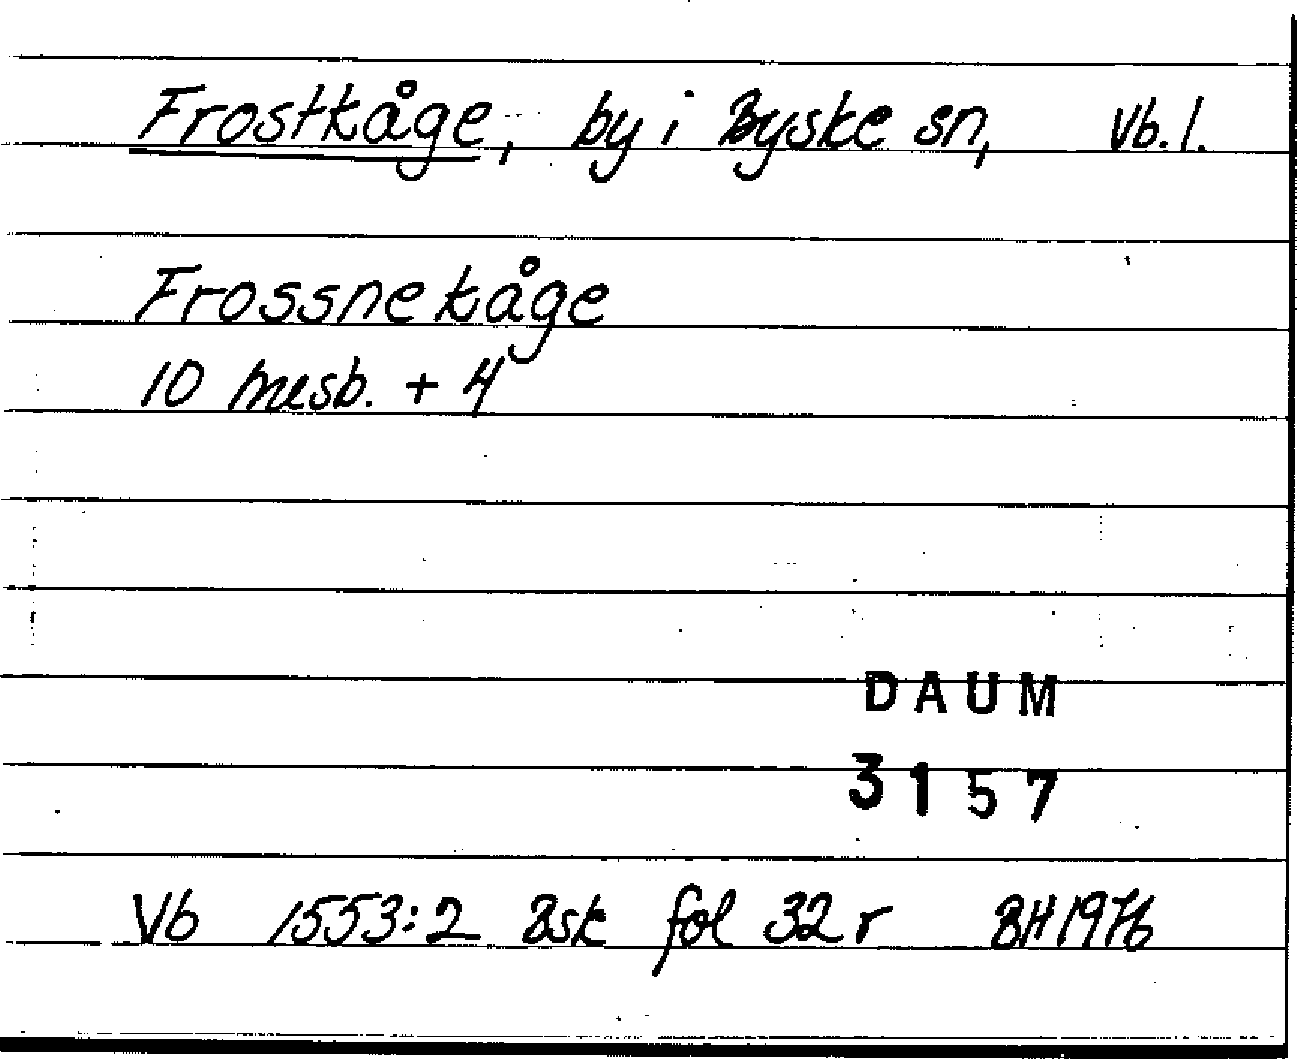 Frostkåge, by i Byske sn, Vb. l.
Frossnekåge
10 mesb. + 4
DAUM
3157
Vb 1553:2 äsk fol 32 r BH 1976